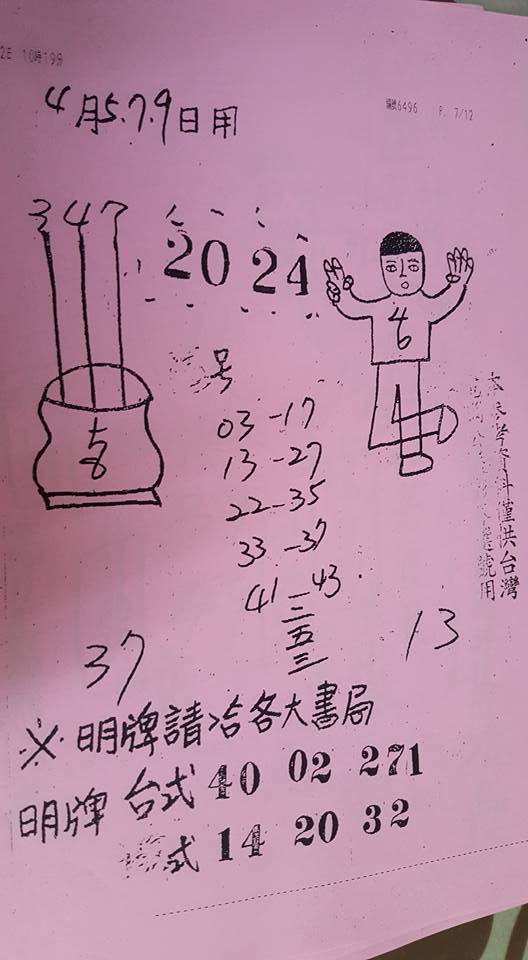 10時19分
編號6496 P. 7/12
4月5.7.9日用
3 4 7
20 24
号
03-17
13-27
22-35
33-37
41-43
二
五
三
37
13
※明牌請洽各大書局
明牌 台式 40 02 271
式 14 20 32
本參考資料僅供台灣
號用